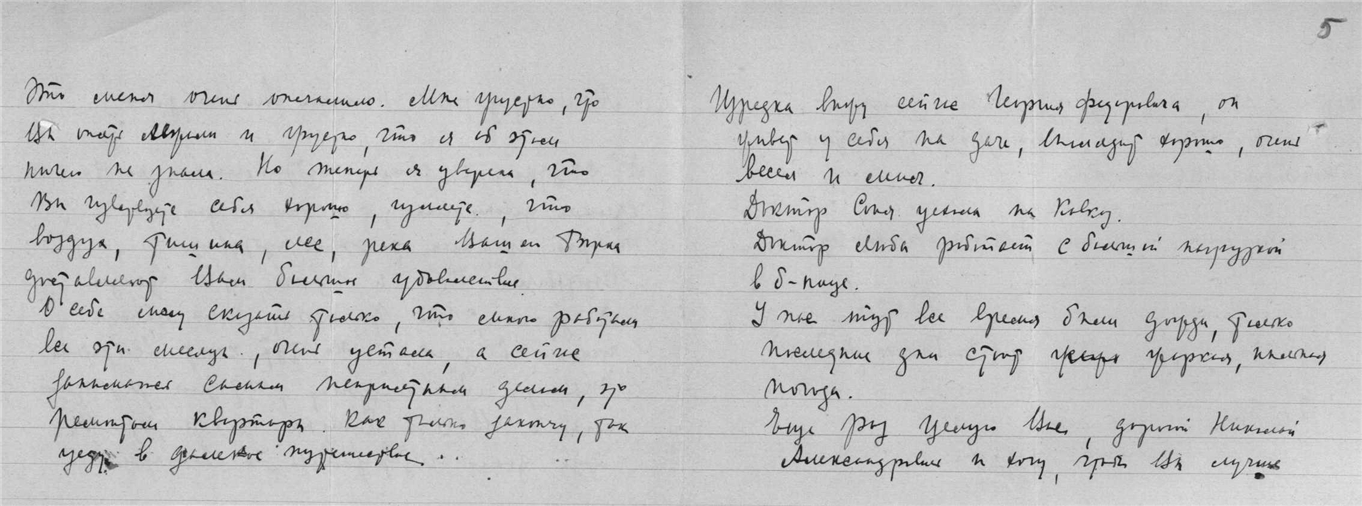 5
Это меня очень опечалило. Мне грустно, что
Вы опять хворали и грустно, что я об этом
ничего не знала. Но теперь я уверена, что
Вы чувствуете себя хорошо, гуляете, что
воздух, тишина, лес, река Вашей
доставляют Вам большое удовольствие.
О себе могу сказать только, что много работала
все эти месяцы, очень устала, а сейчас
занимаюсь самым неприятным делом, это
ремонтом квартиры. Как только закончу, так
уеду в далекое путешествие..
Изредка вижу сейчас Георгия Федоровича, он
живет у себя на даче, выглядит хорошо, очень
весел и мил.
Доктор Соня уехала на Кавказ.
Доктор Люба работает с большой нагрузкой
в б-нице.
У нас тут все время были дожди, только
последние дни стоит жаркая, пыльная
погода.
Еще раз целую Вас, дорогой Николай
Александрович и хочу, чтобы Вы лучше